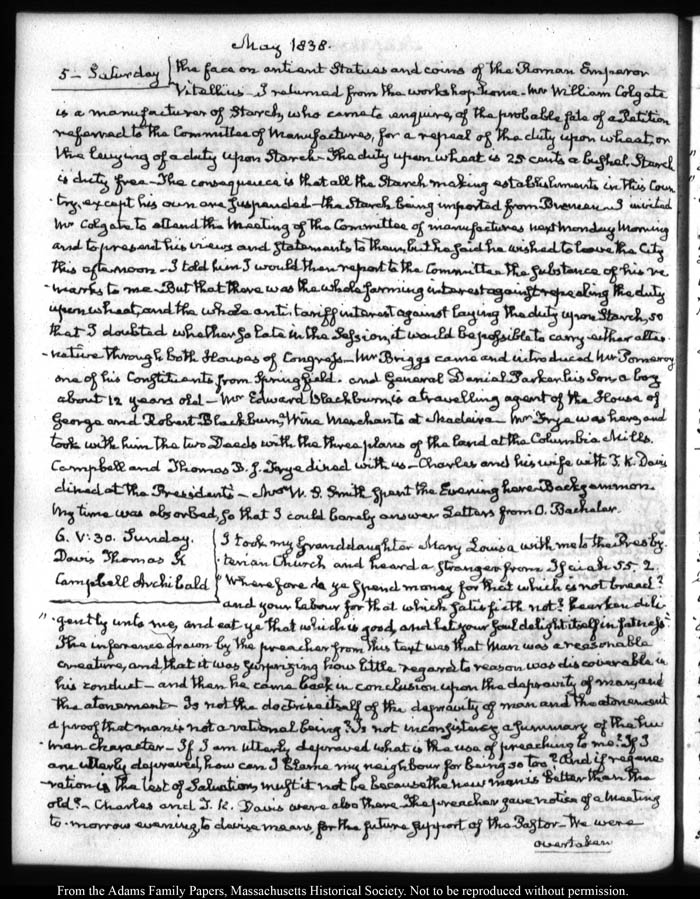 May 1838.
5 – Saturday
the face on antient Statues and coins of the Roman Emperor
Vitellius – I returned from the workshop home. Mr William Colgate
is a manufacturer of Starch, who came to enquire, of the probable fate of a Petition
referred to the Committee of Manufactures, for a repeal of the duty upon wheat, or
the laying of a duty upon Starch – The duty upon wheat is 25 cents a bushel. Starch
is duty free – The consequence is that all the Starch making establishments in this Coun
-try, except his own are suspended – the Starch being imported from Bremen – I invited
Mr Colgate to attend the Meeting of the Committee of manufactures next Monday Morning
and to present his views and statements to them, but he said he wished to leave the City
this afternoon – I told him I would then report to the Committee the substance of his re
-marks to me – But that there was the whole farming interest against repealing the duty
upon wheat, and the whole anti-tariff interest against laying the duty upon Starch, so
that I doubted whether so late in the Session, it would be possible to carry either alter
-native through both Houses of Congress – Mr Briggs came and introduced Mr Pomeroy
one of his Constituents from Springfield. and General Daniel Parker his Son a boy
about 12 years old – Mr Edward Blackburn, is a travelling agent of the House of
George and Robert Blackburn, Wine Merchants at Madeira – Mr Frye was here, and
took with him the two Deeds with the three plans of the land at the Columbia Mills.
Campbell and Thomas B. J. Frye dined with us – Charles and his wife with T. K. Davis
dined at the President's – Mrs W. S. Smith spent the Evening here. Backgammon.
My time was absorbed, so that I could barely answer Letters from O. Bacheler.
6. V:30. Sunday.
Davis Thomas K
Campbell Archibald
I took my Granddaughter Mary Louisa with me to the Presby-
terian Church and heard a stranger from Isaiah 55. 2.
"Wherefore do ye spend money for that which is not bread?
and your labour for that which satisfieth not? hearken dili
" -gently unto me, and eat ye that which is good, and let your soul delight itself in fatness"
The inference drawn by the preacher from this text was that Man was a reasonable
creature, and that it was surprizing how little regard to reason was discoverable in
his conduct – and then he came back in conclusion upon the depravity of man, and
the atonement – Is not the doctrine itself of the depravity of man and the atonement
a proof that man is not a rational being? Is not inconsistency a summary of the hu
-man character – If I am utterly depraved what is the use of preaching to me? If I
am utterly depraved, how can I blame my neighbour for being so too? And if regene
-ration is the test of Salvation, must it not be because the new man is better than the
old? – Charles and T. K. Davis were also there. The preacher gave notice of a Meeting
to-morrow evening, to devise means, for the future support of the Pastor – We were
overtaken
From the Adams Family Papers, Massachusetts Historical Society. Not to be reproduced without permission.